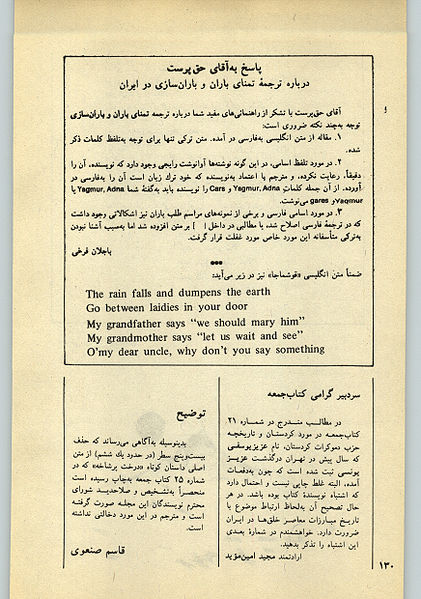 پاسخ به‌آقای حق‌پرست
درباره ترجمهٔ تمنای باران و باران‌سازی در ایران
آقای حق‌پرست با تشکر از راهنمائی‌های مفید شما درباره ترجمه تمنای باران و باران‌سازی
توجه به‌چند نکته ضروری است:
۱. مقاله از متن انگلیسی به‌فارسی در آمده. متن ترکی تنها برای توجه به‌تلفظ کلمات ذکر
شده.
۲. در مورد تلفظ اسامی، در این گونه نوشته‌ها آوانوشت رایجی وجود دارد که نویسنده، آن را
دقیقاً، رعایت نکرده، و مترجم با اعتماد به‌نویسنده که خود ترك زبان است آن را به‌فارسی در
آورده. از آن جمله کلمات Yagmur, Adna و Cars را نویسنده باید به‌گفتهٔ شما Yagmur, Adna یا
Yaqmur و gares می‌نوشت.
۳. در مورد اسامی فارسی و برخی از نمونه‌های مراسم طلب باران نیز اشکالاتی وجود داشت
که در ترجمهٔ فارسی اصلاح شد، یا مطالبی در داخل [ ] بر متن افزوده شد اما به‌سبب آشنا نبودن
به‌ترکی متأسفانه این مورد خاص مورد غفلت قرار گرفت.
باجلان فرخی
●●●
ضمناً متن انگلیسی «قوشماجا» نیز در زیر می‌آید:
The rain falls and dumpens the earth
Go between laidies in your door
My grandfather says “we should mary him”
My grandmother says “let us wait and see”
O’my dear uncle, why don’t you say something
سردبیر گرامی کتاب‌جمعه
در مطالب مندرج در شماره ۲۱
کتاب‌جمعه در مورد کردستان و تاریخچه
حزب دموکرات کردستان، نام عزیزیوسفی
که سال پیش در تهران درگذشت عزیز
یونسی ثبت شده است که چون به‌دفعات
آمده، البته غلط چاپی نیست و احتمال دارد
که اشتباه نویسندهٔ کتاب بوده باشد. در هر
حال تصحیح آن به‌لحاظ ارتباط موضوع با
تاریخ مبارزات معاصر خلق‌ها در ایران
ضرورت دارد. خواهشمندم در شمارهٔ بعدی
این اشتباه را تذکر بدهید.
ارادتمند مجید امین‌مؤید
توضیح
بدینوسیله به‌آگاهی می‌رساند که حذف
بیست‌وپنج سطر (در حدود یك ششم) از متن
اصلی داستان کوتاه «درخت پرشاخه» که در
شماره ۲۵ کتاب جمعه به‌چاپ رسیده است
منحصراً به‌تشخیص و صلاحدید شورای
محترم نویسندگان این مجله صورت گرفته
است و مترجم در این مورد دخالتی نداشته
است.
قاسم صنعوی
۱۳۰